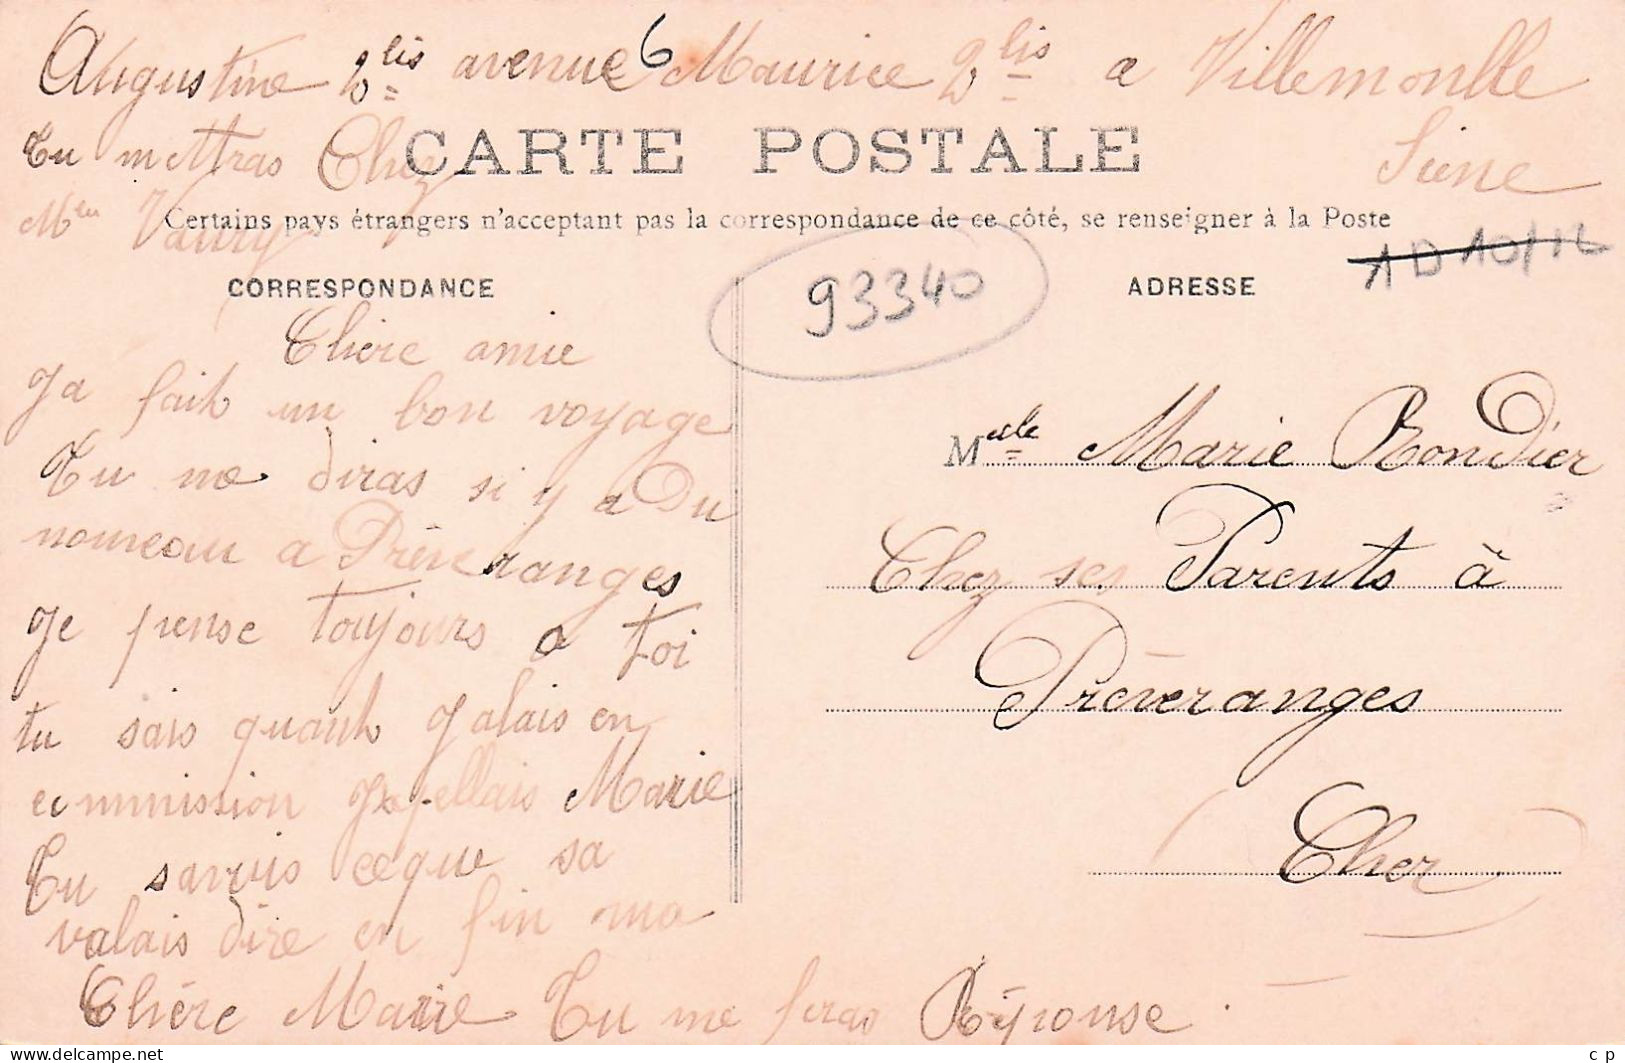 Augustine 2 bis avenue 6 Maurice 2 bis a Villemonble
Tu mettras Chez Seine
Mme Vaury
CARTE POSTALE
Certains pays étrangers n'acceptent pas la correspondance de ce côté, se renseigner à la Poste
AD 10/12
93340
CORRESPONDANCE
Chère amie
J'a fait un bon voyage
Tu me diras si y a Du
nouveau a Préveranges
Je pense toujours a toi
tu sais quant J alais en
commission Japellais Marie
Tu savais ceque sa
valais dire en fin ma
Chère Marie Tu me feras Réponse.
ADRESSE
Melle Marie RonDier
Chez ses Parents à
Préveranges
Cher
c p